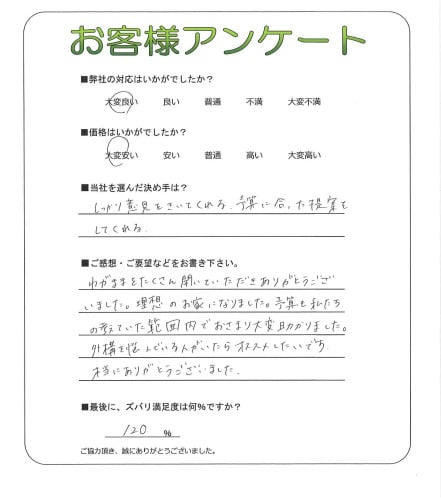 お客様アンケート
■弊社の対応はいかがでしたか？
大変良い 良い 普通 不満 大変不満
■価格はいかがでしたか？
大変安い 安い 普通 高い 大変高い
■当社を選んだ決め手は？
しっかり意見をきいてくれる。予算に合った提案を
してくれる。
■ご感想・ご要望などをお書き下さい。
わがままをたくさん聞いていただきありがとうござ
いました。理想のお家になりました。予算も私たち
の考えていた範囲内でおさまり大変助かりました。
外構を悩んでいる人がいたらオススメしたいです。
本当にありがとうございました。
■最後に、ズバリ満足度は何％ですか？
120 %
ご協力頂き、誠にありがとうございました。